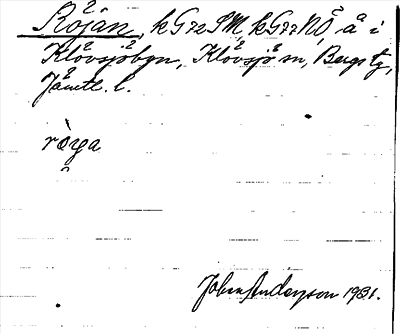 Röjån, kG72SM, kG77NÖ, å i
Klövsjöbyn, Klövsjö sn, Bergs tg,
Jämtl. l.
ròya
John Anderson 1931.